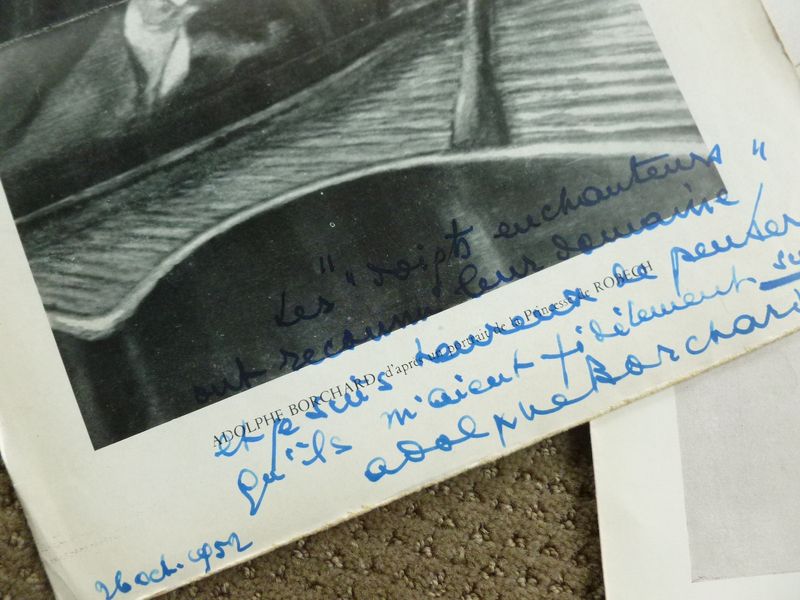 Les "doigts enchanteurs"
ont reconnu leur domaine
ADOLPHE BORCHARD, d'après un portrait de la Princesse de ROBECH
et je suis heureux de penser
qu'ils m'aient fidèlement
Adolphe Borchard
26 oct. 1952